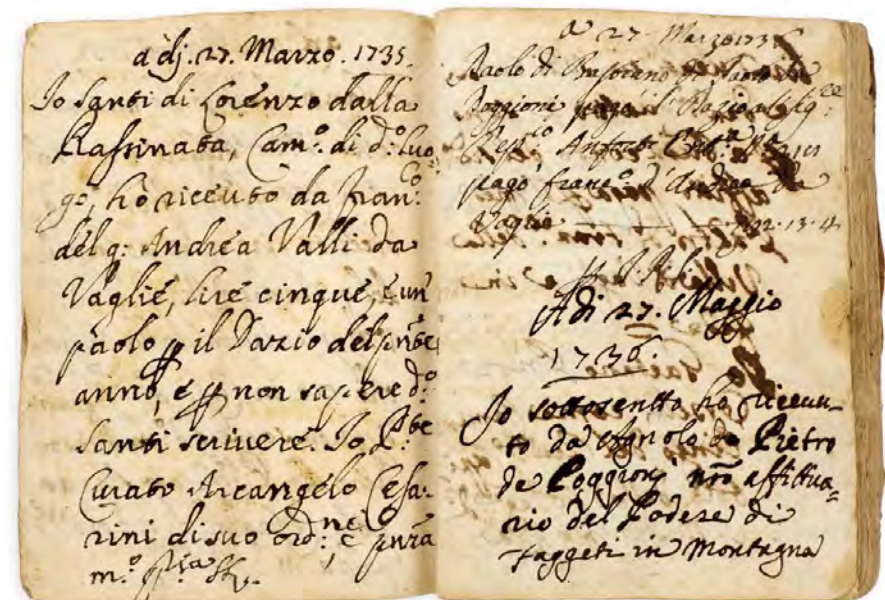 a dj. 27. Marzo. 1735.
Io Santi di Lorenzo dalla
Rassinata, Cam.º di d.º luo-
go, hò riceuto da Fran.co
del q: Andrea Valli da
Vaglie, lire cinque, e un
paolo p il Dazio del pnte
anno, e p non sapere d.º
Santi scrivere. Io P.te
Curato Arcangelo Cesa-
rini di suo ord:ne, e pnza
m.º
a 27 Marzo 173
Paolo di
Poggioni pago il Dazio al Sig.re
pagò Franc.º d'Andrea da
Vaglie 12.13.4
Adi 27. Maggio
1736.
Io sottoscritto ho riceuu-
to da Agnolo di Pietro
da Poggioni nr̃o affittua-
rio del Podere di
Faggeti in Montagna